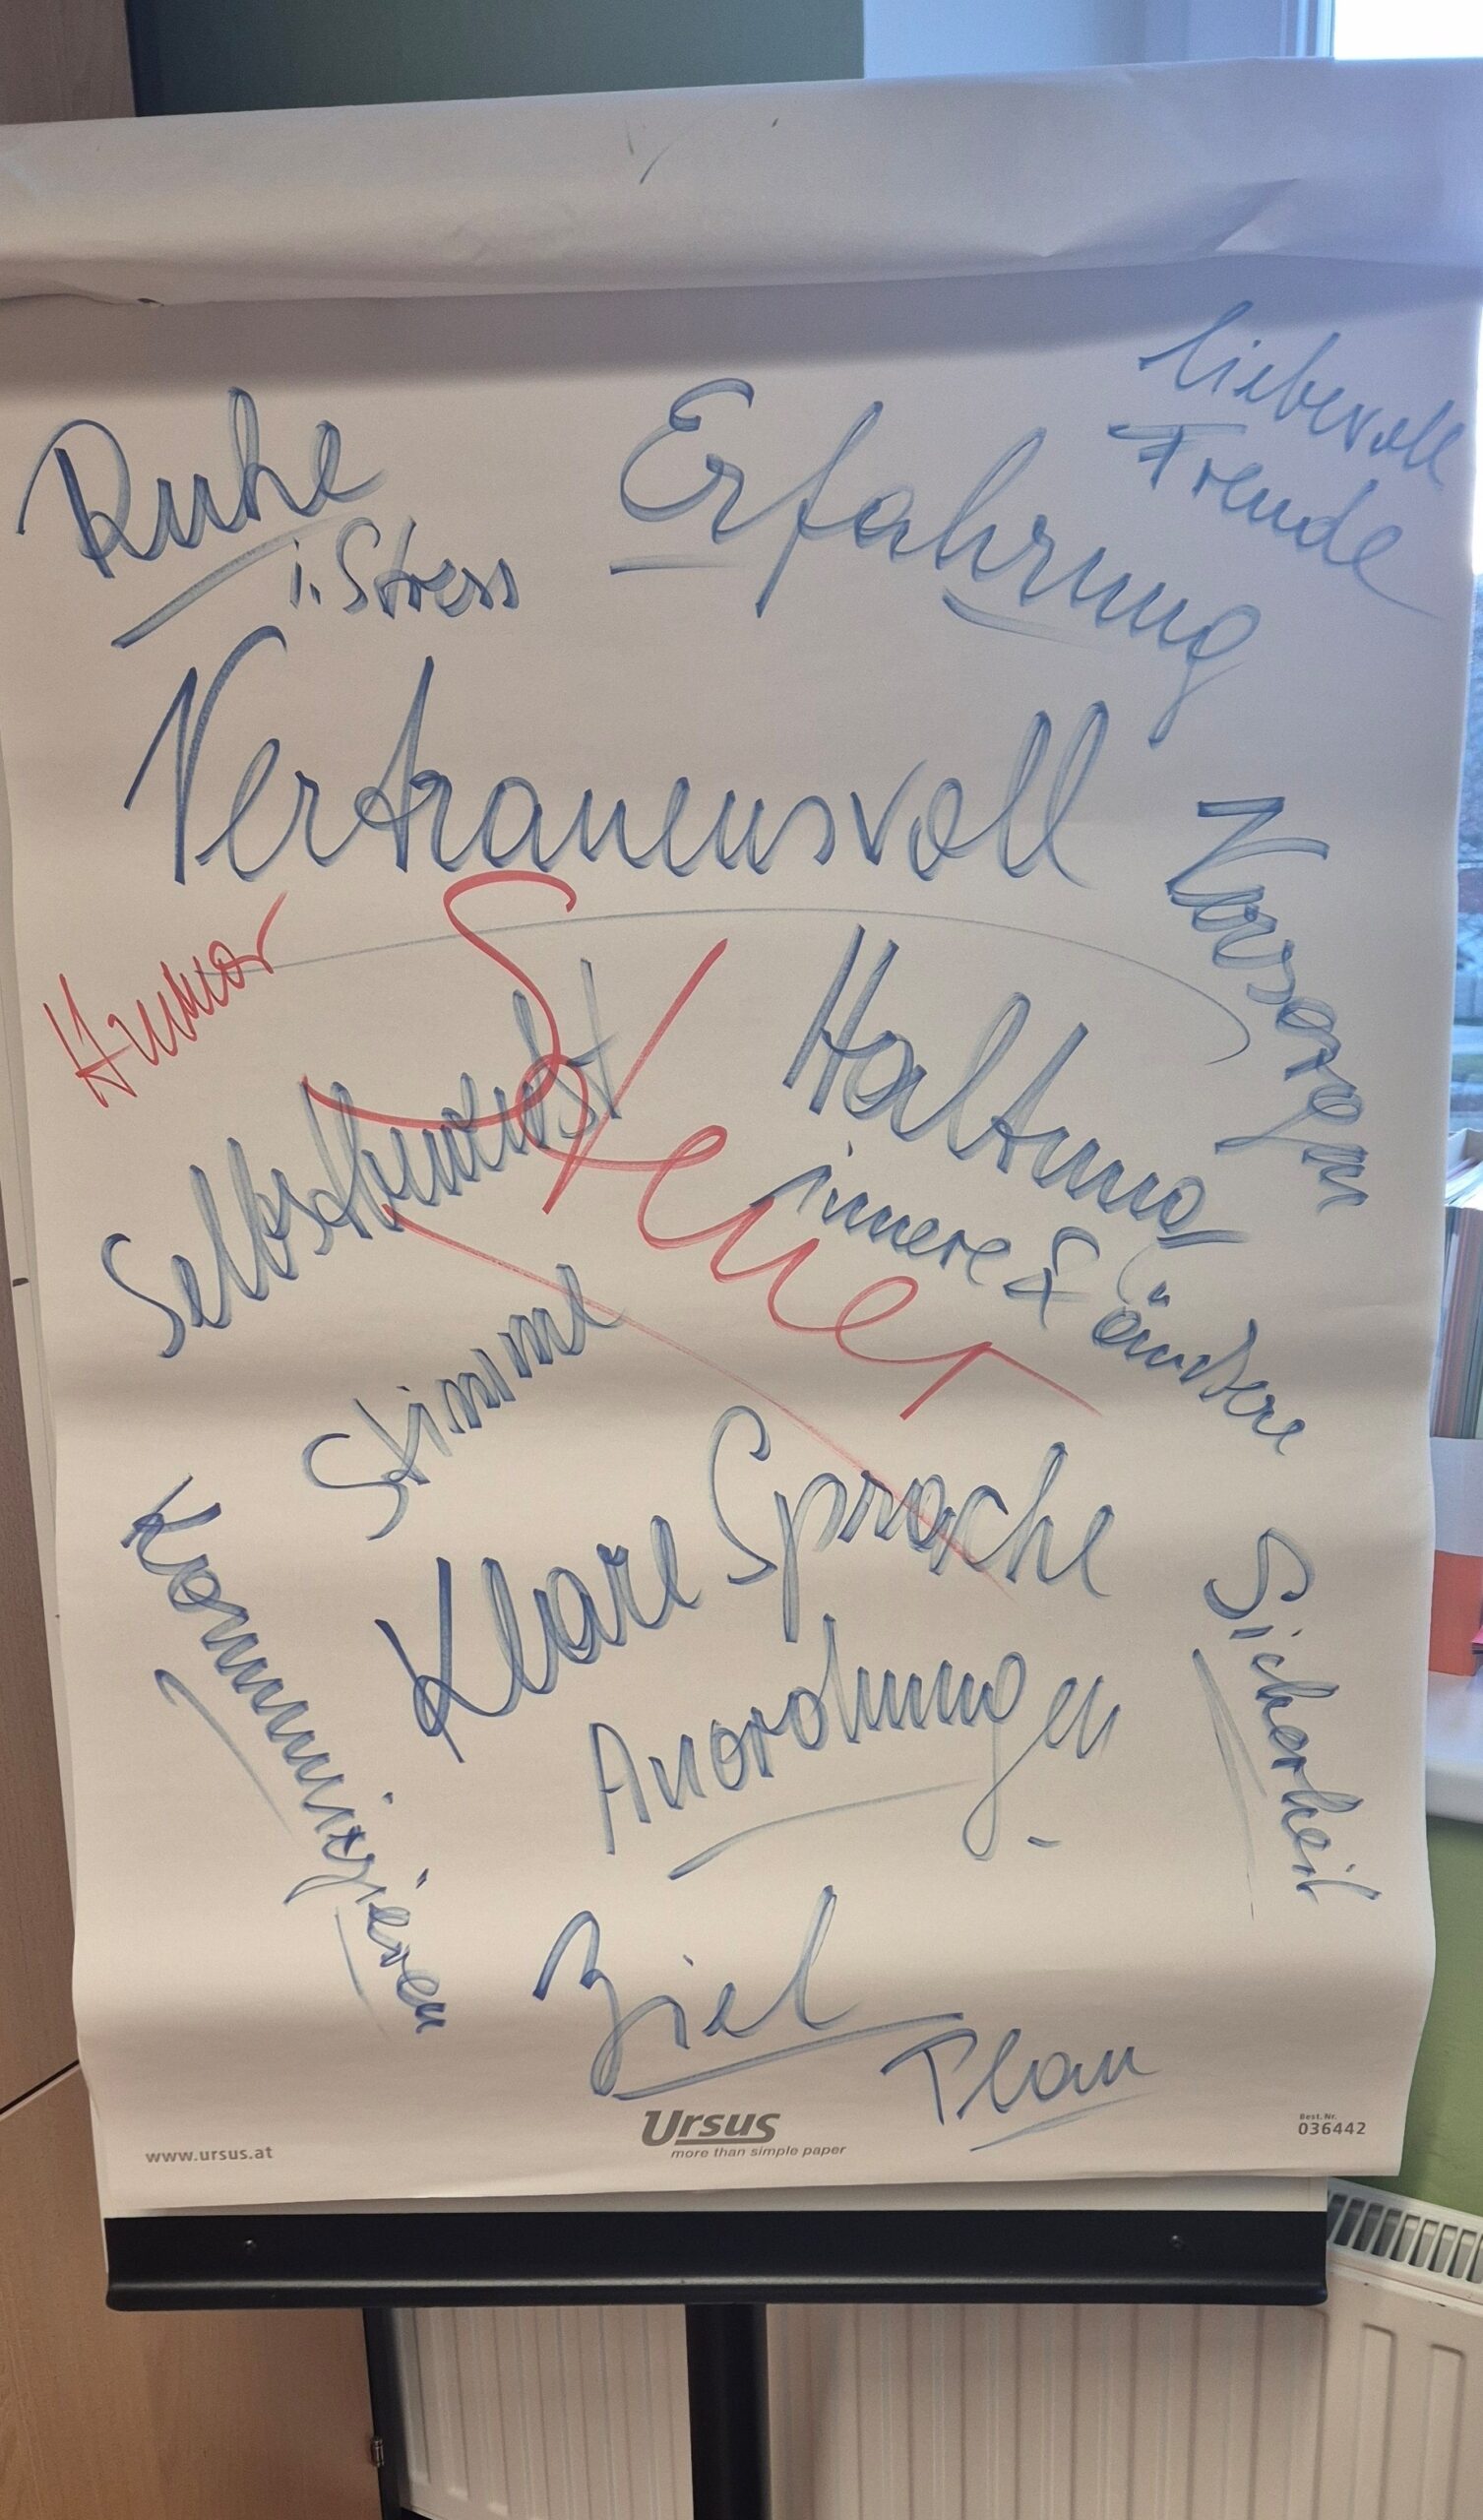 liebevoll
Freude
Ruhe
i. Stress
Erfahrung
Vertrauensvoll
Vorsorgen
Humor
Steuer
Haltung
innere & äußere
Selbstbewußt
Stimme
Klare Sprache
Anordnungen
Kommunizieren
Sicherheit
Ziel
Plan
www.ursus.at
Ursus
more than simple paper
Best.Nr.
036442